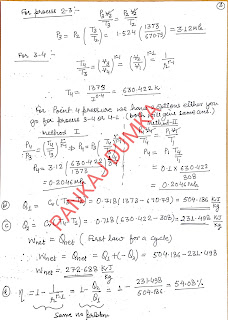 For process 2-3:-
P₂V₂/T₂ = P₃V₃/T₃
P₃ = P₂(T₃/T₂) = 1.524(1373/670.79) = 3.12 MPa
For 3-4:-
T₄ = 1373/ = 630.422 K
For Point 4 pressure we have options either you
go for process 3-4 or 4-1. (both will give same ans.)
Method I
Method-II
P₄ = 3.12(630.422/1373)
= 0.2046 MPa
P₄ = P₁ T₄/T₁
= 0.1 × 630.422/308
= 0.2046 MPa
(b) Q₁ = Cv(T₃-T₂) = 0.718(1373-670.79) = 504.186 KJ/Kg
(c) Q₂ = Cv(T₄-T₁) = 0.718(630.422-308) = 231.498 KJ/Kg
Wnet = Qnet (First law for a cycle)
∴ Wnet = Qnet = Q₁+(-Q₂) = 504.186-231.498
Wnet = 272.688 KJ/Kg
(d) η = 1 - 1/ = 1 - Q₂/Q₁ = 1 - 231.498/504.186 = 54.08%
Same no problem
PANKAJ DUMKA